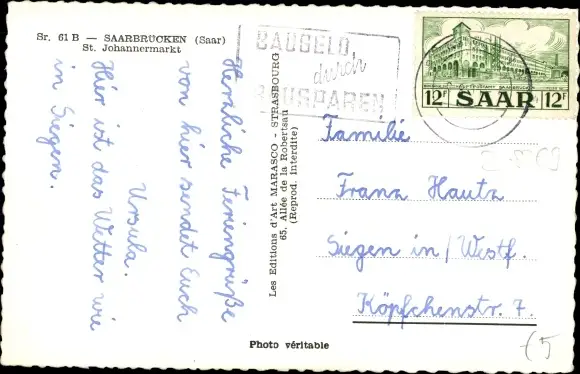 Sr. 61 B — SAARBRÜCKEN (Saar)
St. Johannermarkt
Herzliche Feriengrüße
von hier sendet Euch
Ursula.
Hier ist das Wetter wie
in Siegen.
Les Editions d'Art MARASCO - STRASBOURG
65, Allée de la Robertsau
(Reprod. Interdite)
BAUGELD
durch
BAUSPAREN
12F SAAR 12F
Familie
Franz Hautz
Siegen in/Westf.
Köpfchenstr. 7.
Photo véritable
€5